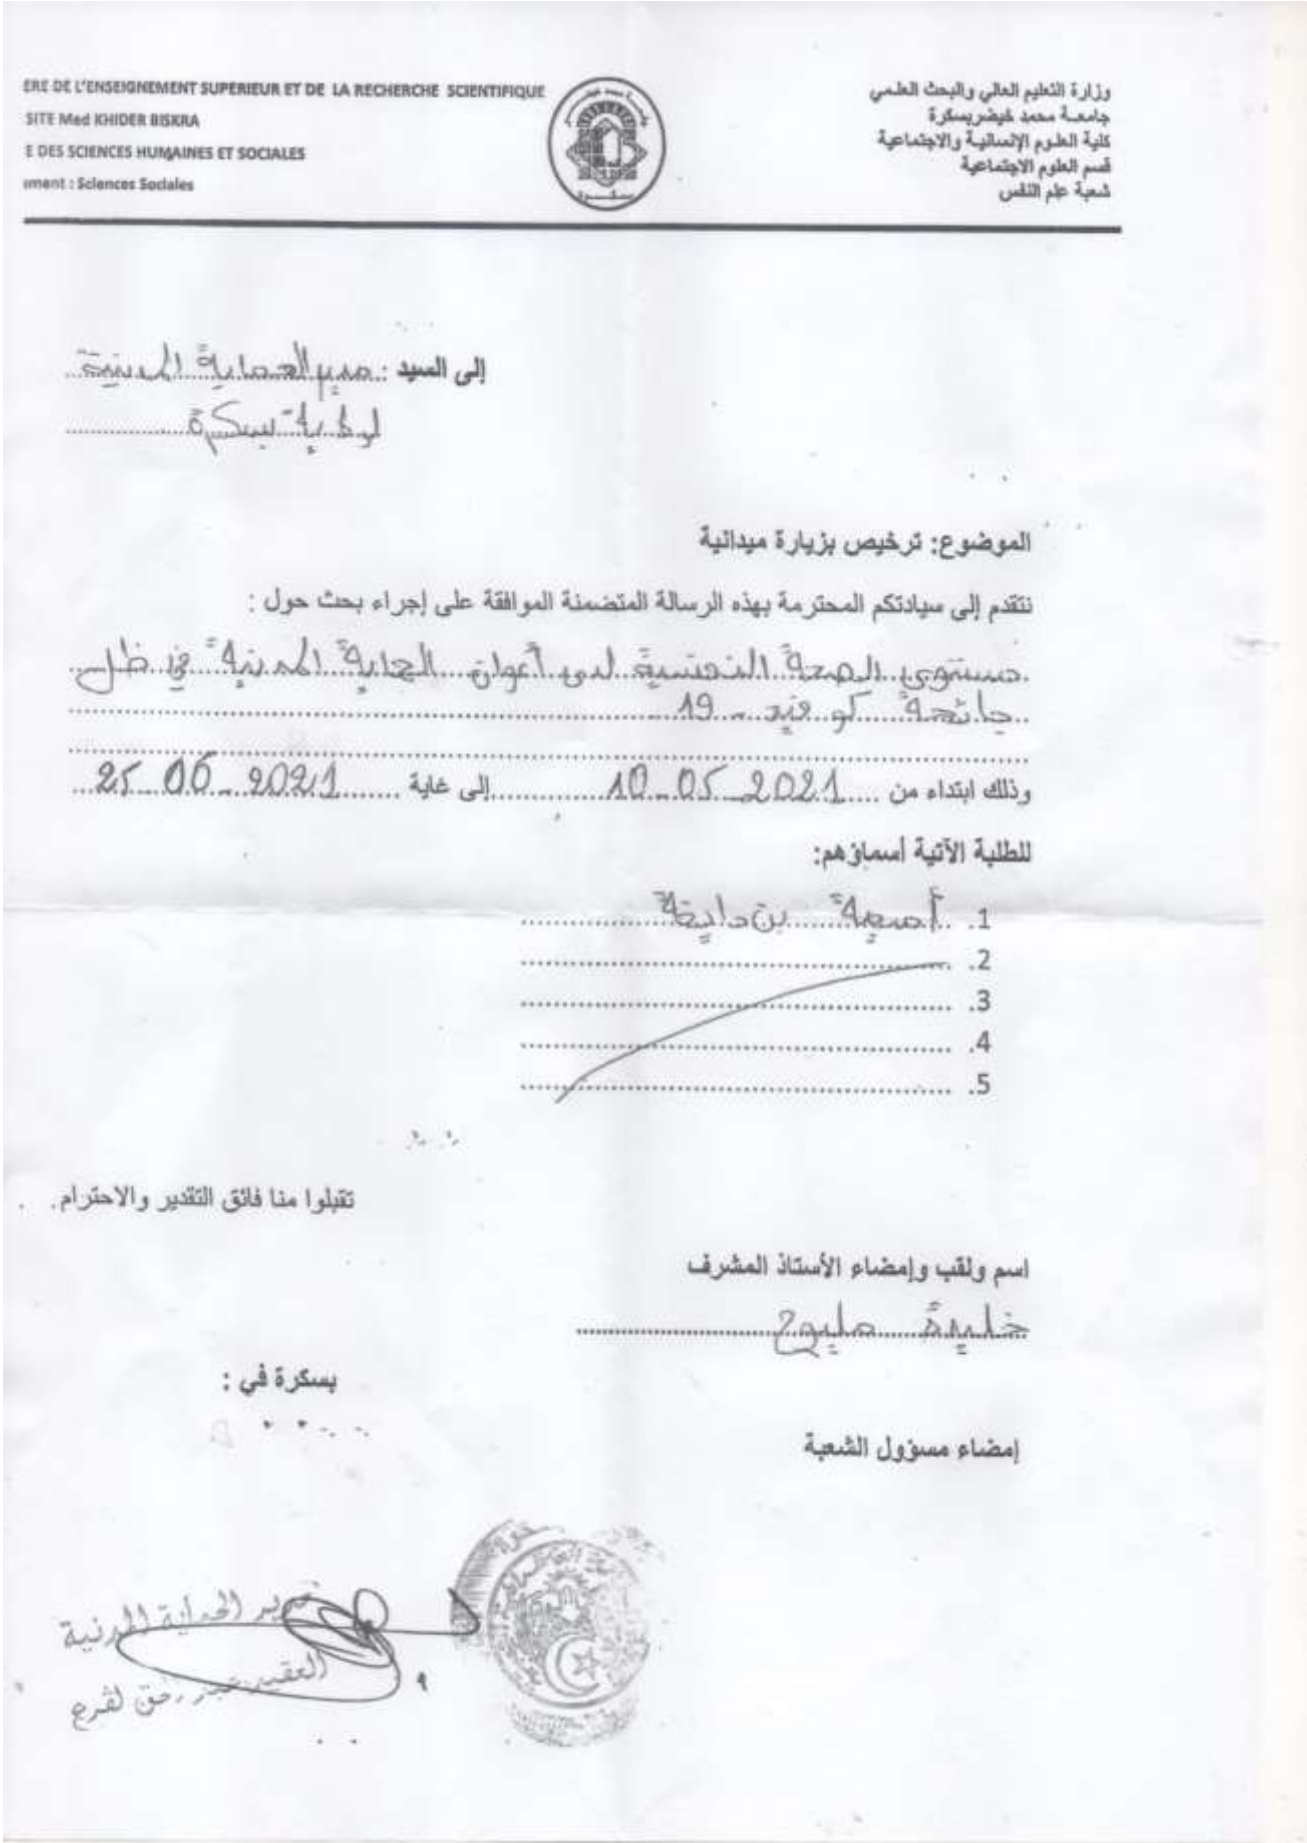 ERE DE L'ENSEIGNEMENT SUPERIEUR ET DE LA RECHERCHE SCIENTIFIQUE
SITE Med KHIDER BISKRA
E DES SCIENCES HUMAINES ET SOCIALES
ment : Sciences Sociales
وزارة التعليم العالي والبحث العلمي
جامعة محمد خيضر بسكرة
كلية العلوم الإنسانية والاجتماعية
قسم العلوم الاجتماعية
شعبة علم النفس
إلى السيد : مدير الحماية المدنية
لولاية بسكرة
الموضوع: ترخيص بزيارة ميدانية
نتقدم إلى سيادتكم المحترمة بهذه الرسالة المتضمنة الموافقة على إجراء بحث حول :
مستوى الصحة النفسية لدى أعوان الحماية المدنية في ظل
جائحة كوفيد - 19
وذلك ابتداء من 10-05-2021 إلى غاية 25-06-2021
للطلبة الآتية أسماؤهم:
1. أمية بن داية
2.
3.
4.
5.
تقبلوا منا فائق التقدير والاحترام.
اسم ولقب وإمضاء الأستاذ المشرف
خليدة مليوح
بسكرة في :
إمضاء مسؤول الشعبة
مدير الحماية المدنية
العقيد